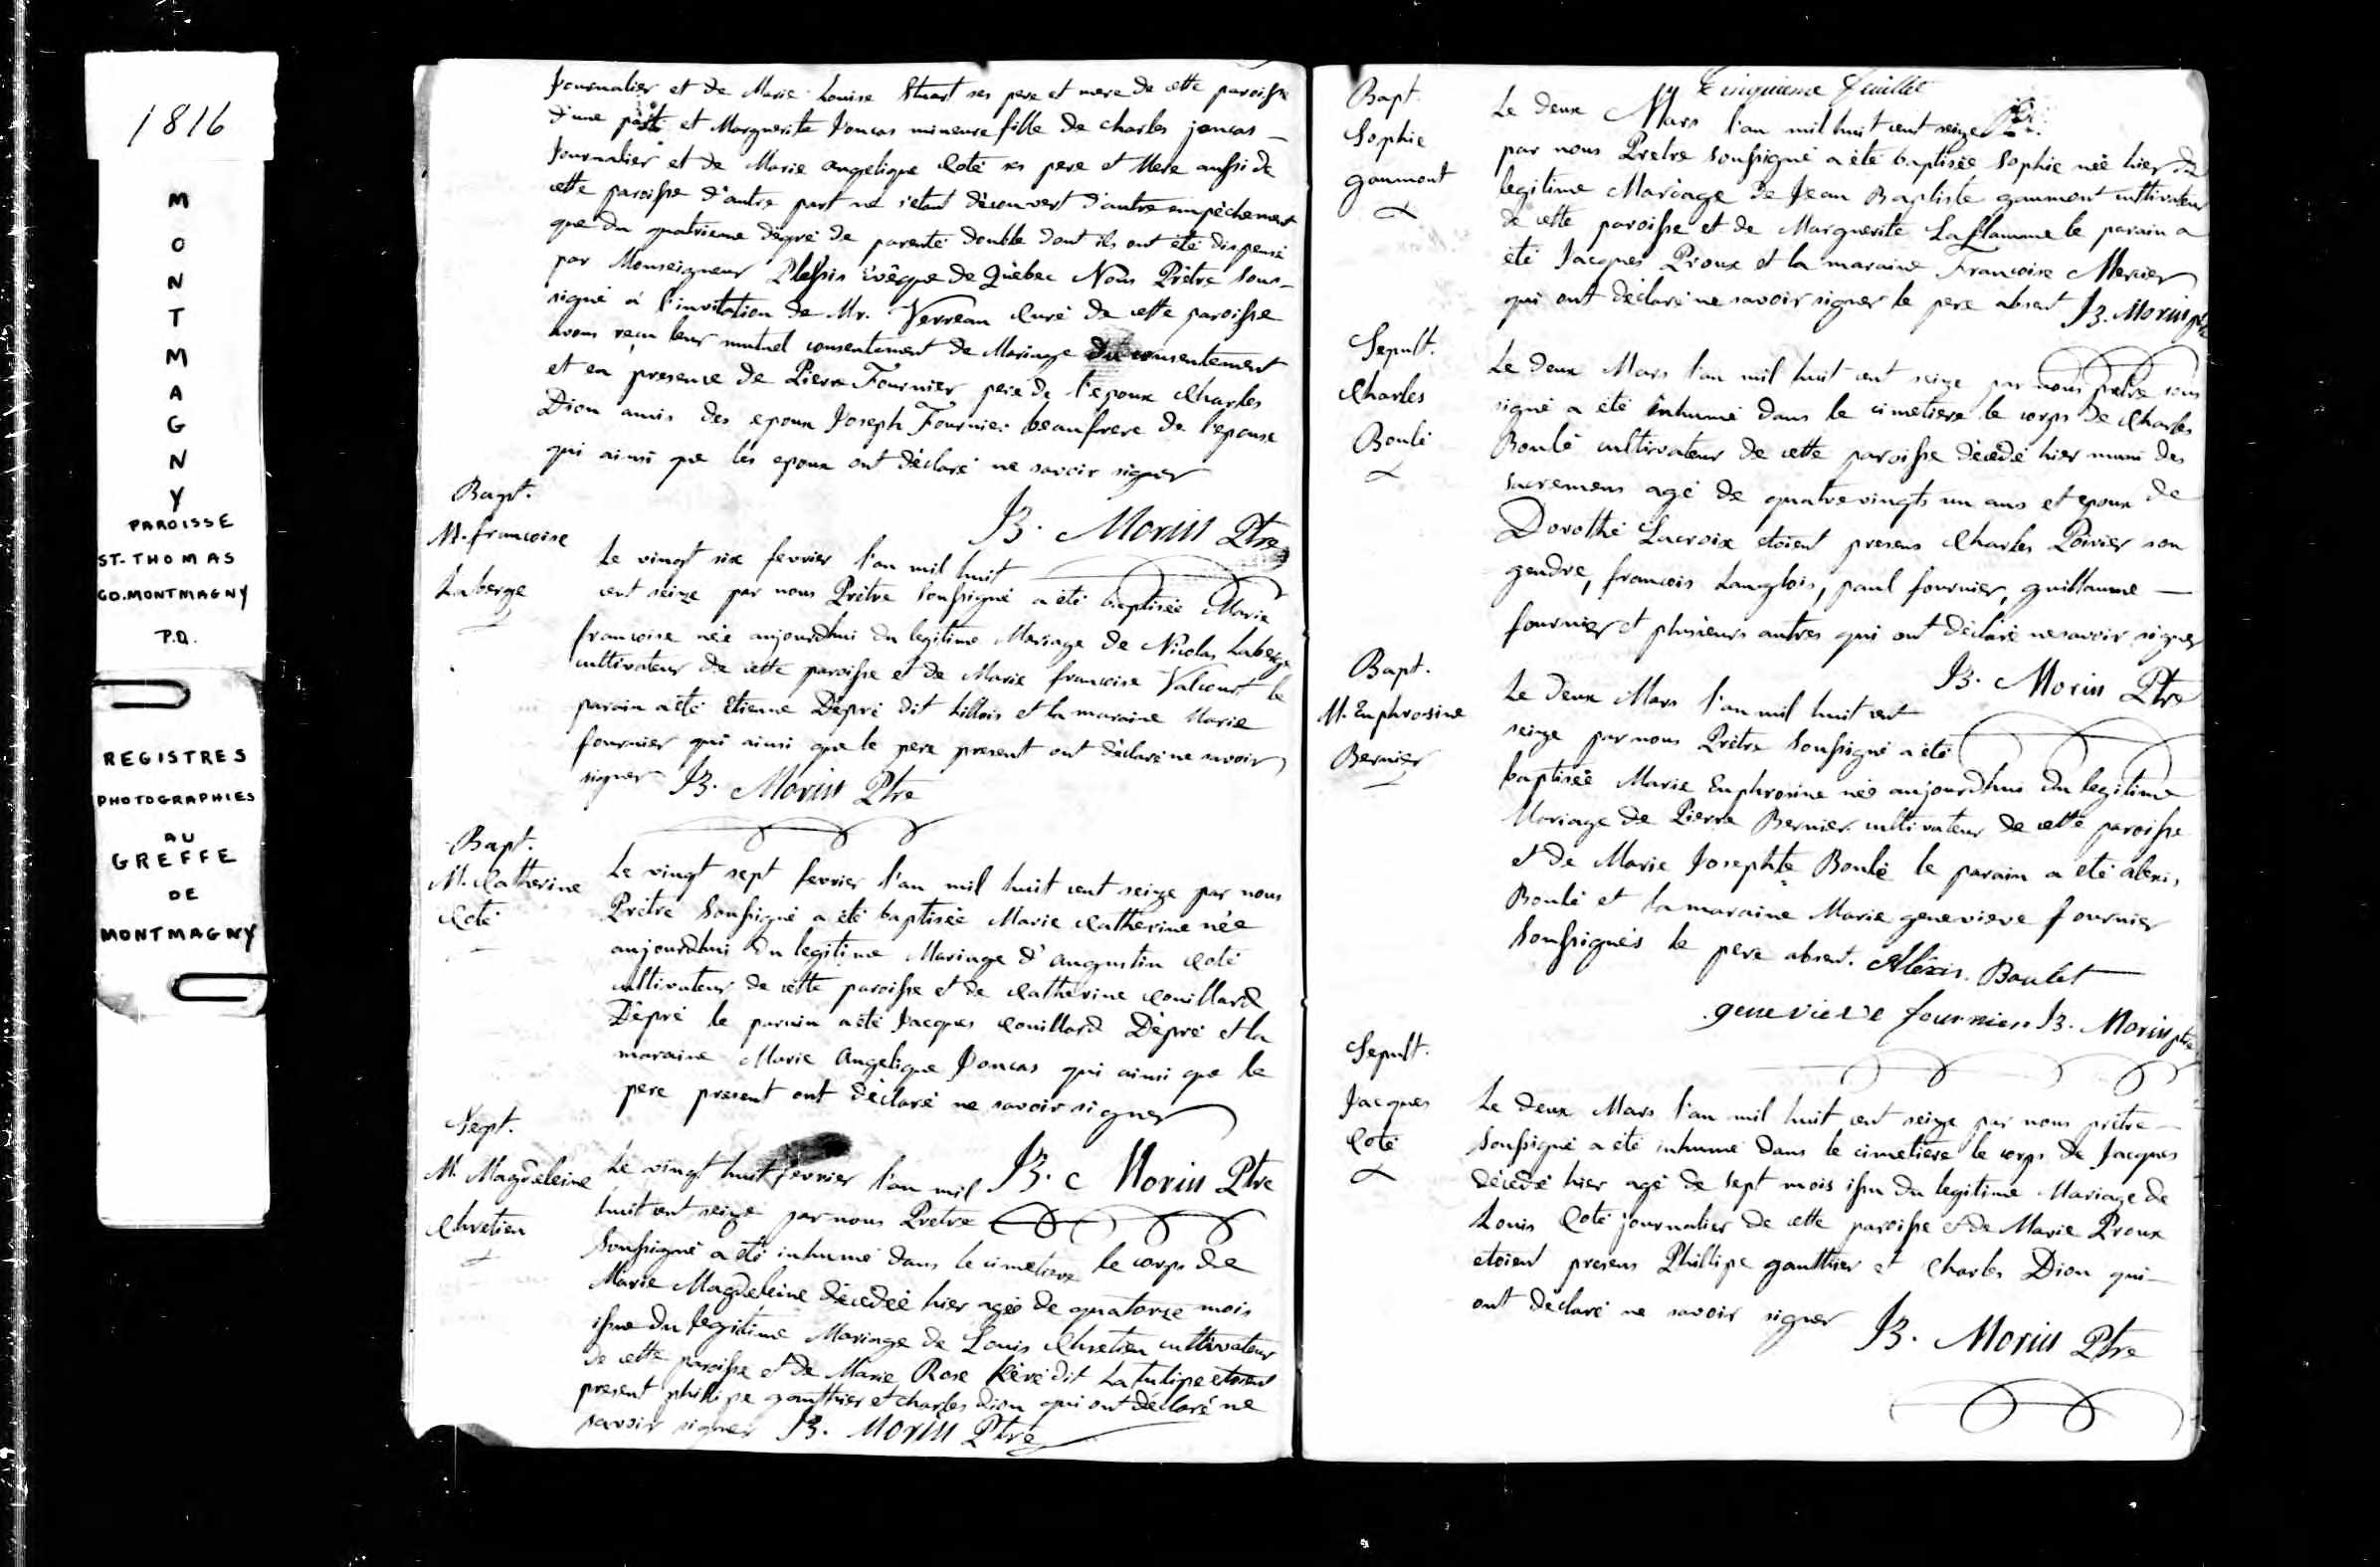 1816
MONTMAGNY
PAROISSE
ST-THOMAS
CO. MONTMAGNY
P.Q.
REGISTRES
PHOTOGRAPHIES
AU
GREFFE
DE
MONTMAGNY
Journalier et de Marie Louise Stuart ses pere et mere de cette paroisse
d'une part et Marguerite Joncas mineure fille de charles joncas
Journalier et de Marie angelique Coté ses pere et Mere aussi de
cette paroisse d'autre part ne s'etant découvert d'autre empêchement
que du quatrieme dégré de parenté double dont ils ont été dispensé
par Monseigneur Plessis évêque de Québec Nous Prêtre sous-
signé à l'invitation de Mr. Verreau Curé de cette paroisse
avons reçu leur mutuel consentement de Mariage du consentement
et en presence de Pierre Fournier pere de l'epoux Charles
Dion amis des epoux Joseph Fournier beaufrere de l'epouse
qui ainsi que les epoux ont déclaré ne savoir signer
B. Morin Ptre
Bapt.
M. francoise
Laberge
Le vingt six fevrier l'an mil huit
cent seize par nous Prêtre soussigné a été baptisée Marie
francoise née aujourdhui du legitime Mariage de Nicolas Laberge
cultivateur de cette paroisse et de Marie francoise Valcourt le
parain a été Etienne Dépré dit hillois et la maraine Marie
fournier qui ainsi que le pere present ont déclaré ne savoir
signer B. Morin Ptre
Bapt.
M. Catherine
Coté
Le vingt sept fevrier l'an mil huit cent seize par nous
Prêtre soussigné a été baptisée Marie Catherine née
aujourdhui du legitime Mariage d'augustin Coté
cultivateur de cette paroisse et de Catherine Couillard
Dépré le parain a été Jacques Couillard Dépré et la
maraine Marie Angelique Joncas qui ainsi que le
pere present ont déclaré ne savoir signer
B. Morin Ptre
Sept.
M. Magdeleine
Chretien
Le vingt huit fevrier l'an mil
huit cent seize par nous Prêtre
soussigné a été inhumé dans le cimetiere le corps de
Marie Magdeleine décedée hier agée de quatorze mois
issue du legitime Mariage de Louis Chretien cultivateur
de cette paroisse et de Marie Rose dit Latulipe etoient
present phillipe gauthier et charles dion qui ont déclaré ne
savoir signer B. Morin Ptre
Cinquieme feuillet
Bapt.
Sophie
gaumont
Le deux Mars l'an mil huit cent seize
par nous Prêtre soussigné a été baptisée Sophie née hier du
legitime Mariage de Jean Baptiste gaumont cultivateur
de cette paroisse et de Marguerite Laflamme le parain a
été Jacques Proux et la maraine Francoise Mercier
qui ont déclaré ne savoir signer le pere absent B. Morin ptre
Sepult.
Charles
Boulé
Le deux Mars l'an mil huit cent seize par nous prêtre sous
signé a été inhumé dans le cimetiere le corps de Charles
Boulé cultivateur de cette paroisse décédé hier muni des
sacremens agé de quatrevingts un ans et epoux de
Dorothé Lacroix etoient presens Charles Poirier son
gendre, francois Langlois, paul fournier, guillaume
fournier et plusieurs autres qui ont déclaré ne savoir signer
B. Morin Ptre
Bapt.
M. Euphrosine
Bernier
Le deux Mars l'an mil huit cent
seize par nous Prêtre soussigné a été
baptisée Marie Euphrosine née aujourdhui du legitime
Mariage de Pierre Bernier cultivateur de cette paroisse
et de Marie Josephte Boulé le parain a été alexis
Boulé et la maraine Marie genevieve fournier
soussignés le pere absent. Aléxis. Boulet
genevieve fournier B. Morin ptre
Sepult.
Jacques
Coté
Le deux Mars l'an mil huit cent seize par nous prêtre
soussigné a été inhumé dans le cimetiere le corps de Jacques
décedé hier agé de sept mois issu du legitime Mariage de
Louis Coté journalier de cette paroisse et de Marie Proux
etoient presens Phillipe gauthier et Charles Dion qui
ont déclaré ne savoir signer
B. Morin Ptre